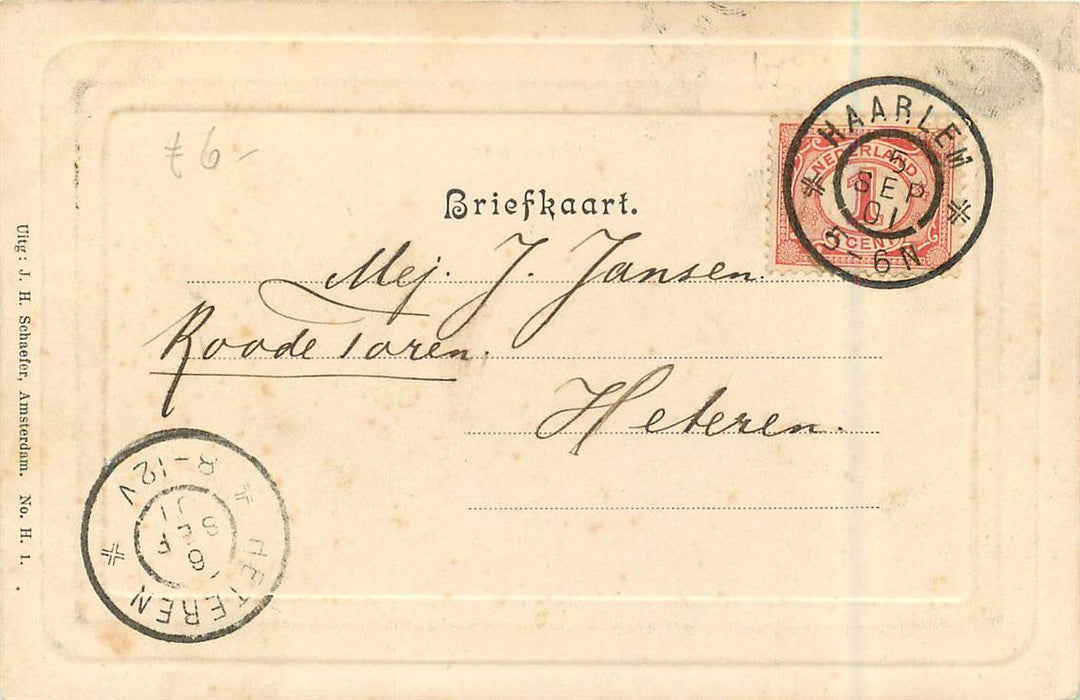 £ 6-
Briefkaart.
Mej. J. Jansen.
Roode Toren.
Heteren.
NEDERLAND
1
CENT
HAARLEM
5
SEP
01
5-6N
HETEREN
6
SEP
01
8-12V
Uitg: J. H. Schaefer, Amsterdam. No. H. 1.